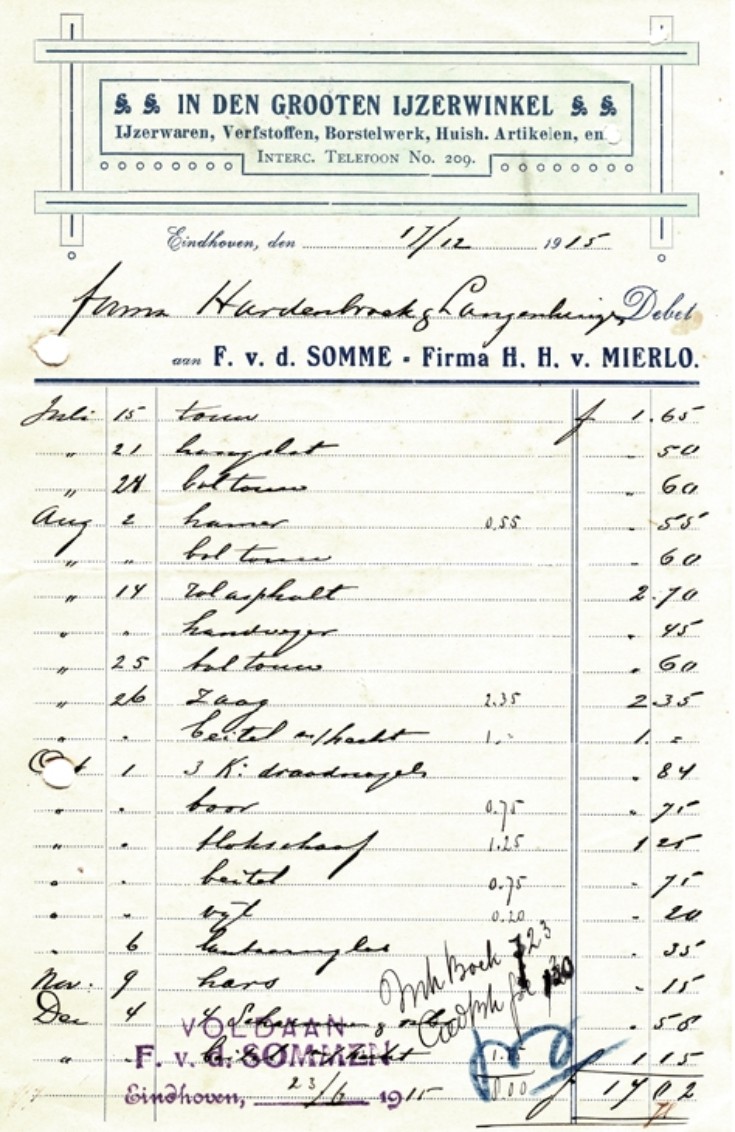 IN DEN GROOTEN IJZERWINKEL
IJzerwaren, Verfstoffen, Borstelwerk, Huish. Artikelen, en
INTERC. TELEFOON No. 209.
Eindhoven, den 17/12 1915
firma Hardenbroek & Debet
aan F. v. d. SOMME - Firma H. H. v. MIERLO.
Juli 15 touw f 1.65
" 21 hangslot - 50
" 28 bol touw " 60
Aug 2 hamer 0.55 " 55
" " bol touw - 60
" 14 rol asphalt 2.70
" " handveger " 45
" 25 bol touw " 60
" 26 zaag 2.35 2.35
" " beitel m/hecht 1.- 1.-
Oct 1 3 K: draadnagels " 84
" " boor 0.75 " 75
" " blokschaaf 1.25 1 25
" " beitel 0.75 - 75
" " vijl 0.20 - 20
" 6 lantaarnglas " 35
Nov. 9 hars - 15
Dec 4 4 " 58
" " beitel m/hecht 1.15 1 15
f 17 02
Boek 723
130
VOLDAAN
F. v. d. SOMMEN
Eindhoven, 23/6 1915